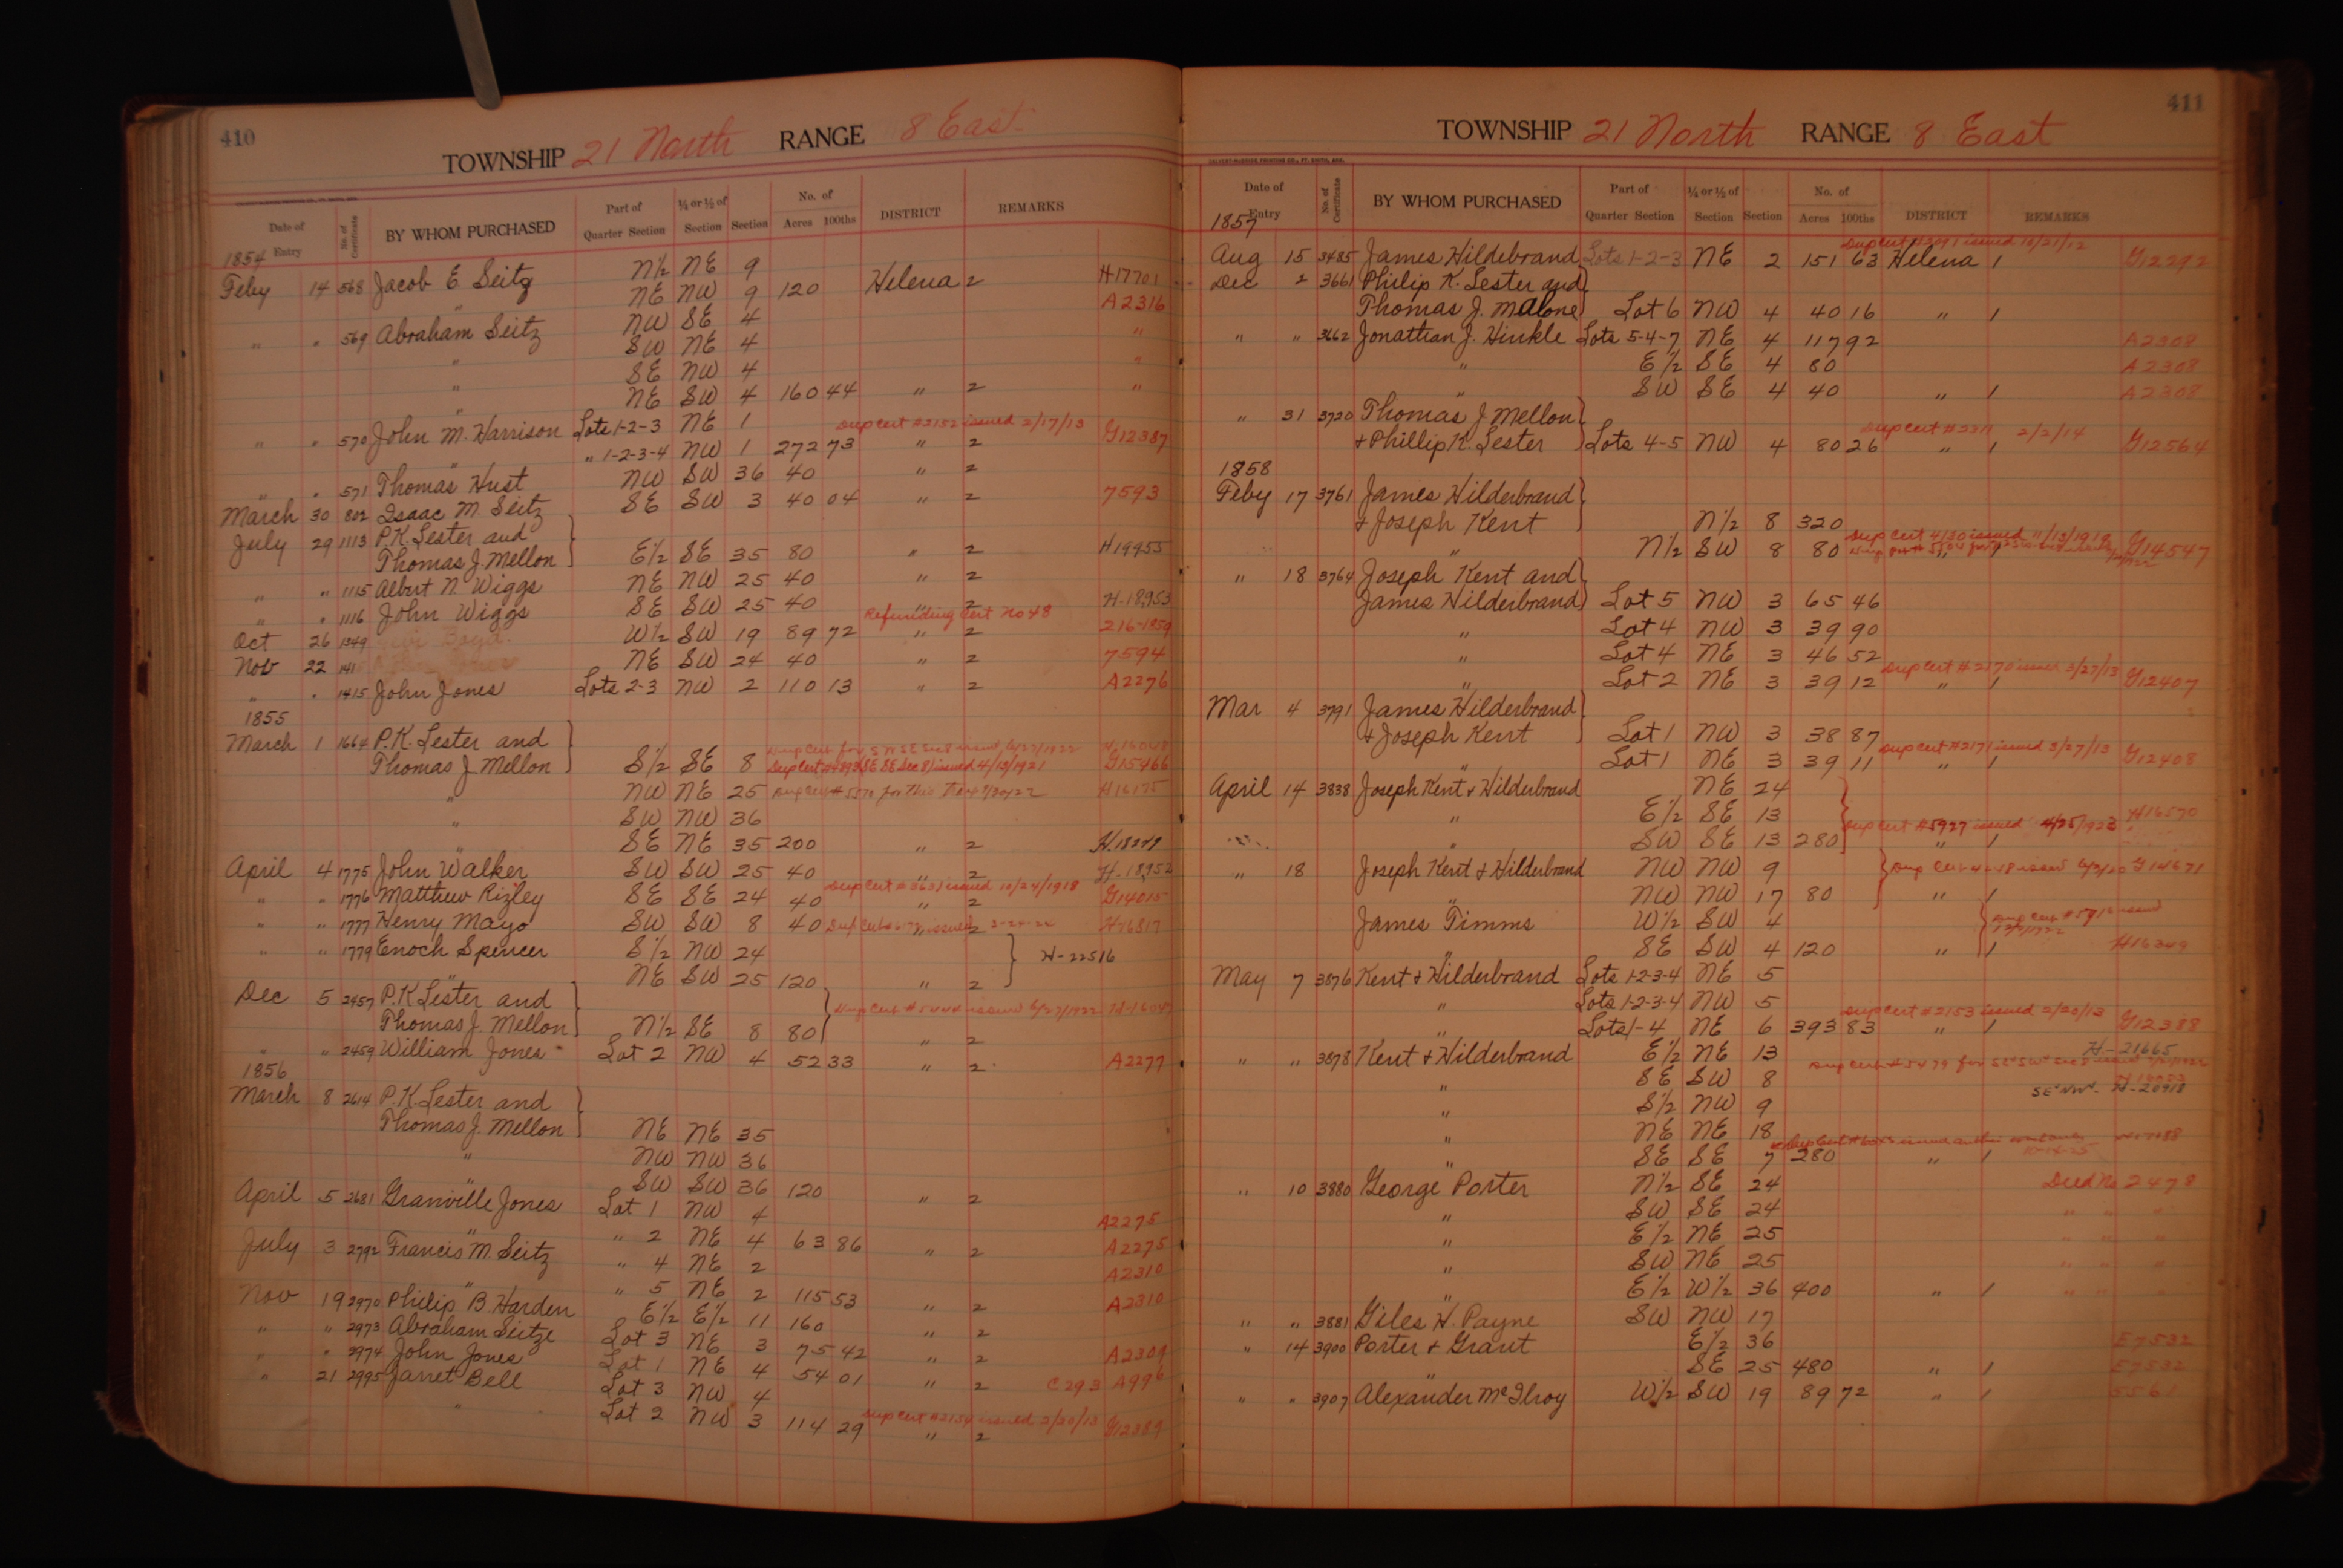 410
TOWNSHIP 21 North RANGE 8 East
Date of Entry No. of Certificate BY WHOM PURCHASED Part of Quarter Section ¼ or ½ of Section Section No. of Acres 100ths DISTRICT REMARKS
1854
Feby 14 568 Jacob E. Seitz N½ NE 9 H17701
NE NW 9 120 Helena 2 A2316
" " 569 Abraham Seitz NW SE 4 "
" SW NE 4 "
" SE NW 4
" NE SW 4 160 44 " 2 "
" " 570 John M. Harrison Lots 1-2-3 NE 1 Dup Cert #2152 issued 2/17/13
" " 1-2-3-4 NW 1 272 73 " 2 G12387
" " 571 Thomas Hust NW SW 36 40 " 2
March 30 802 Isaac M. Seitz SE SW 3 40 04 " 2 7593
July 29 1113 P.K. Lester and
Thomas J. Mellon E½ SE 35 80 " 2 H19955
" " 1115 Albert N. Wiggs NE NW 25 40 " 2
" " 1116 John Wiggs SE SW 25 40 " 2 H-18,953
Refunding Cert No 48
Oct 26 1349 Boyd W½ SW 19 89 72 " 2 216-1859
Nov 22 NE SW 24 40 " 2 7594
" " 1415 John Jones Lots 2-3 NW 2 110 13 " 2 A2276
1855
March 1 1664 P.K. Lester and
Thomas J Mellon S½ SE 8 Dup Cert #4893 (SE SE Sec 8) issued 4/13/1921 G15466
" NW NE 25 Dup Cert #5570 for this H16175
" SW NW 36
SE NE 35 200 " 2 H.18279
April 4 1775 John Walker SW SW 25 40 " 2 H-18,952
" " 1776 Matthew Rizley SE SE 24 40 Dup Cert #3631 issued 10/24/1918 " 2 G14015
" " 1777 Henry Mayo SW SW 8 40 Dup Cert issued 2-24-24 2 H16817
" " 1779 Enoch Spencer S½ NW 24 H-22516
" NE SW 25 120 " 2
Dec 5 2457 P.K Lester and
Thomas J. Mellon N½ SE 8 80 Dup Cert issued 6/27/1922 " 2
" " 2459 William Jones Lot 2 NW 4 52 33 " 2 A2277
1856
March 8 2614 P.K. Lester and
Thomas J. Mellon NE NE 35
" NW NW 36
" SW SW 36 120 " 2
April 5 2681 Granville Jones Lot 1 NW 4 A2275
" " 2 NE 4 63 86 " 2 A2275
July 3 2792 Francis M. Seitz " 4 NE 2 A2310
" " 5 NE 2 115 53 " 2 A2310
Nov 19 2970 Philip B. Harden E½ E½ 11 160 " 2
" " 2973 Abraham Seitze Lot 3 NE 3 75 42 " 2 A2309
" " 2974 John Jones Lot 1 NE 4 54 01 " 2 C293 A996
" 21 2995 Jarret Bell Lot 3 NW 4
" Lot 2 NW 3 114 29 Dup Cert #2154 issued 2/20/13 " 2 G12389
411
TOWNSHIP 21 North RANGE 8 East
Date of Entry No. of Certificate BY WHOM PURCHASED Part of Quarter Section ¼ or ½ of Section Section No. of Acres 100ths DISTRICT REMARKS
1857
Dup Cert #2091 issued 10/21/12
Aug 15 3485 James Hildebrand Lots 1-2-3 NE 2 151 63 Helena 1 G12292
Dec 2 3661 Philip K. Lester and
Thomas J. Malone Lot 6 NW 4 40 16 " 1
" " 3662 Jonathan J. Hinkle Lots 5-4-7 NE 4 117 92 A2308
" E½ SE 4 80 A2308
" SW SE 4 40 " 1 A2308
" 31 3720 Thomas J Mellon
& Phillip K. Lester Lots 4-5 NW 4 80 26 Dup Cert 2/2/14 " 1 G12564
1858
Feby 17 3761 James Hilderbrand
& Joseph Kent N½ 8 320
" N½ SW 8 80 Dup Cert 4180 issued 11/13/1919 G14547
" 18 3764 Joseph Kent and
James Hilderbrand Lot 5 NW 3 65 46
" Lot 4 NW 3 39 90
" Lot 4 NE 3 46 52
" Lot 2 NE 3 39 12 Dup Cert #2170 issued 3/27/13 " 1 G12407
Mar 4 3791 James Hilderbrand
& Joseph Kent Lot 1 NW 3 38 87
" Lot 1 NE 3 39 11 Dup Cert #2171 issued 3/27/13 " 1 G12408
April 14 3838 Joseph Kent & Hilderbrand NE 24
" E½ SE 13 H16570
" SW SE 13 280 Dup Cert #5927 issued 4/25/1923 " 1
" 18 Joseph Kent & Hilderbrand NW NW 9 Dup Cert issued G14671
" NW NW 17 80 " 1
James Timms W½ SW 4 Dup Cert issued
" SE SW 4 120 " 1 H16349
May 7 3876 Kent & Hilderbrand Lots 1-2-3-4 NE 5
" Lots 1-2-3-4 NW 5
" Lots 1-4 NE 6 393 83 Dup Cert #2153 issued 2/20/13 " 1 G12388
" " 3878 Kent & Hilderbrand E½ NE 13 H-21665
" SE SW 8 Dup Cert #5479 for
" S½ NW 9 SE" NW". H-20918
" NE NE 18
" SE SE 7 280 " 1
" 10 3880 George Porter N½ SE 24 Deed No 2478
" SW SE 24 " " "
" E½ NE 25 " " "
" SW NE 25 " " "
" E½ W½ 36 400 " 1 " " "
" " 3881 Giles H. Payne SW NW 17
" 14 3900 Porter & Grant E½ 36 E7532
" SE 25 480 " 1 E7532
" " 3907 Alexander McIlroy W½ SW 19 89 72 " 1 5561